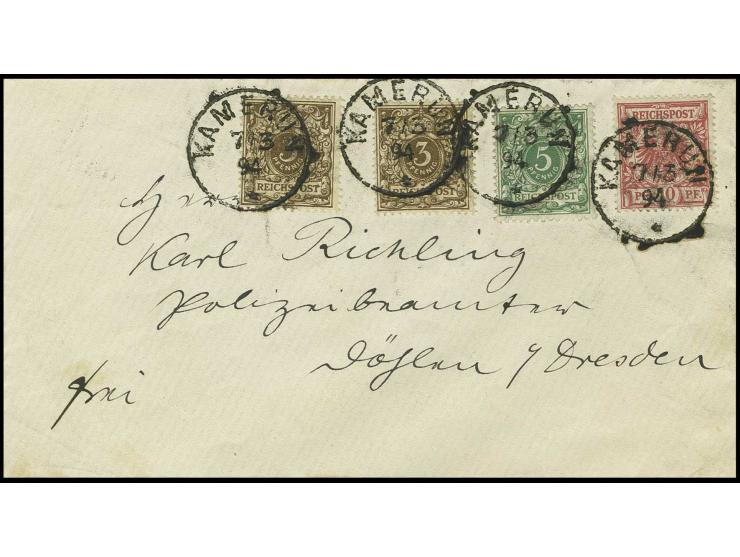 KAMERUN
7/3
94
*
3
PFENNIG
REICHSPOST
KAMERUN
7/3
94
*
3
PFENNIG
REICHSPOST
KAMERUN
7/3
94
*
5
PFENNIG
REICHSPOST
REICHSPOST
KAMERUN
7/3
94
*
10 PF.
Herrn
Karl Richling
Polizeibeamter
Döhlen / Dresden
frei